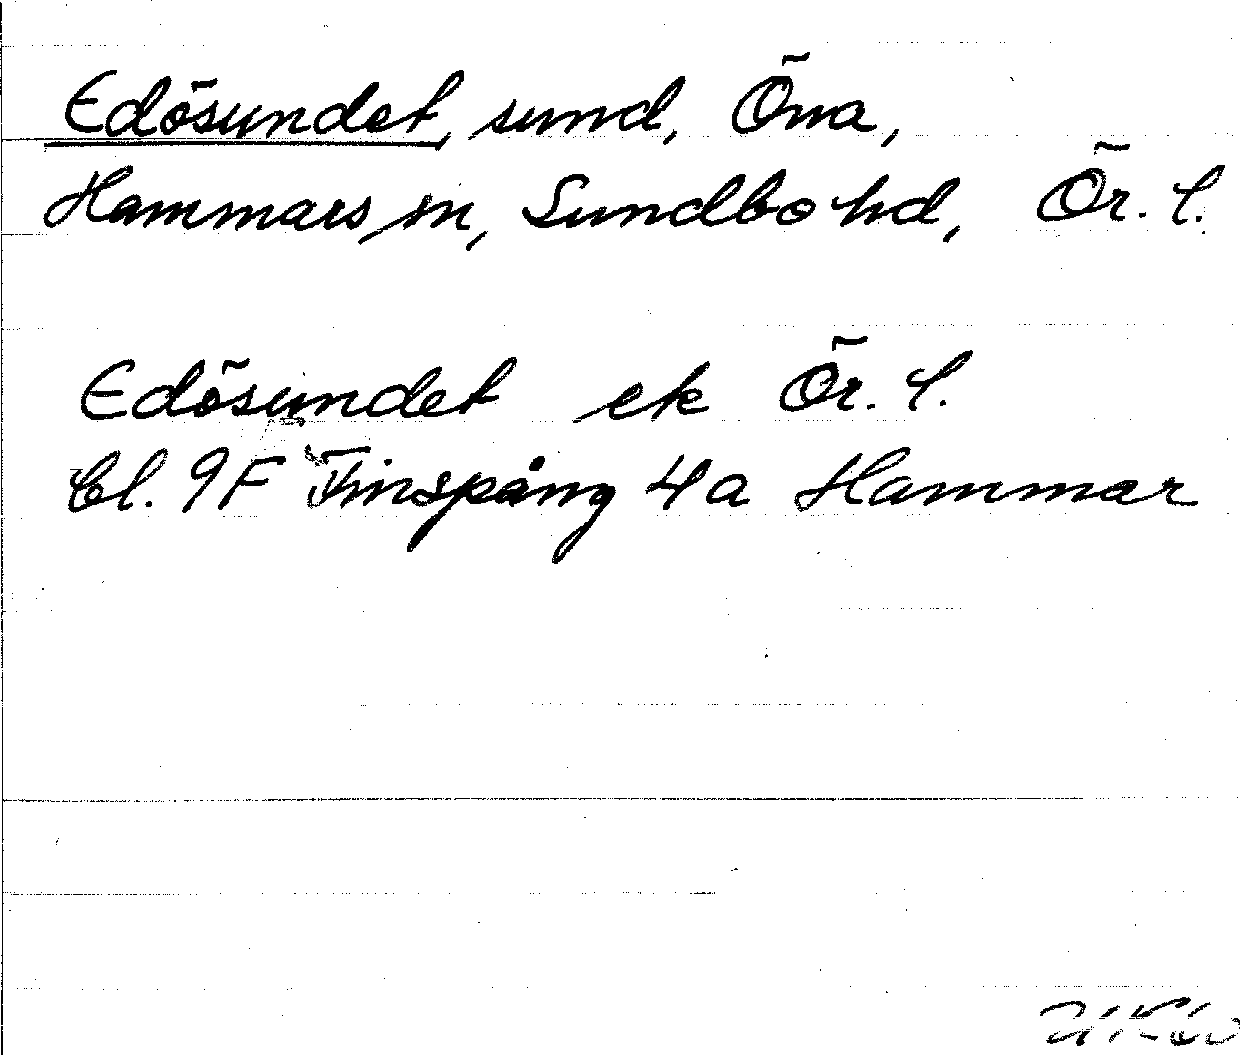 Edösundet, sund, Öna,
Hammars sn, Sundbo hd, Ör. l.
Edösundet ek Ör. l.
bl. 9F Finspång 4a Hammar